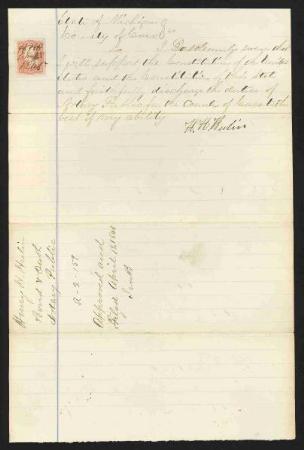 State of Michigan
County of Cass SS
I Do Solemnly swear that
I will support the Constitution of the United
States and the Constitution of this State
and faithfully discharge the duties of
Notary Public for the County of Cass to the
best of my ability
H. H.
Henry H.
Bond & Oath
Notary Public
A-2-157
Approved and
Filed April